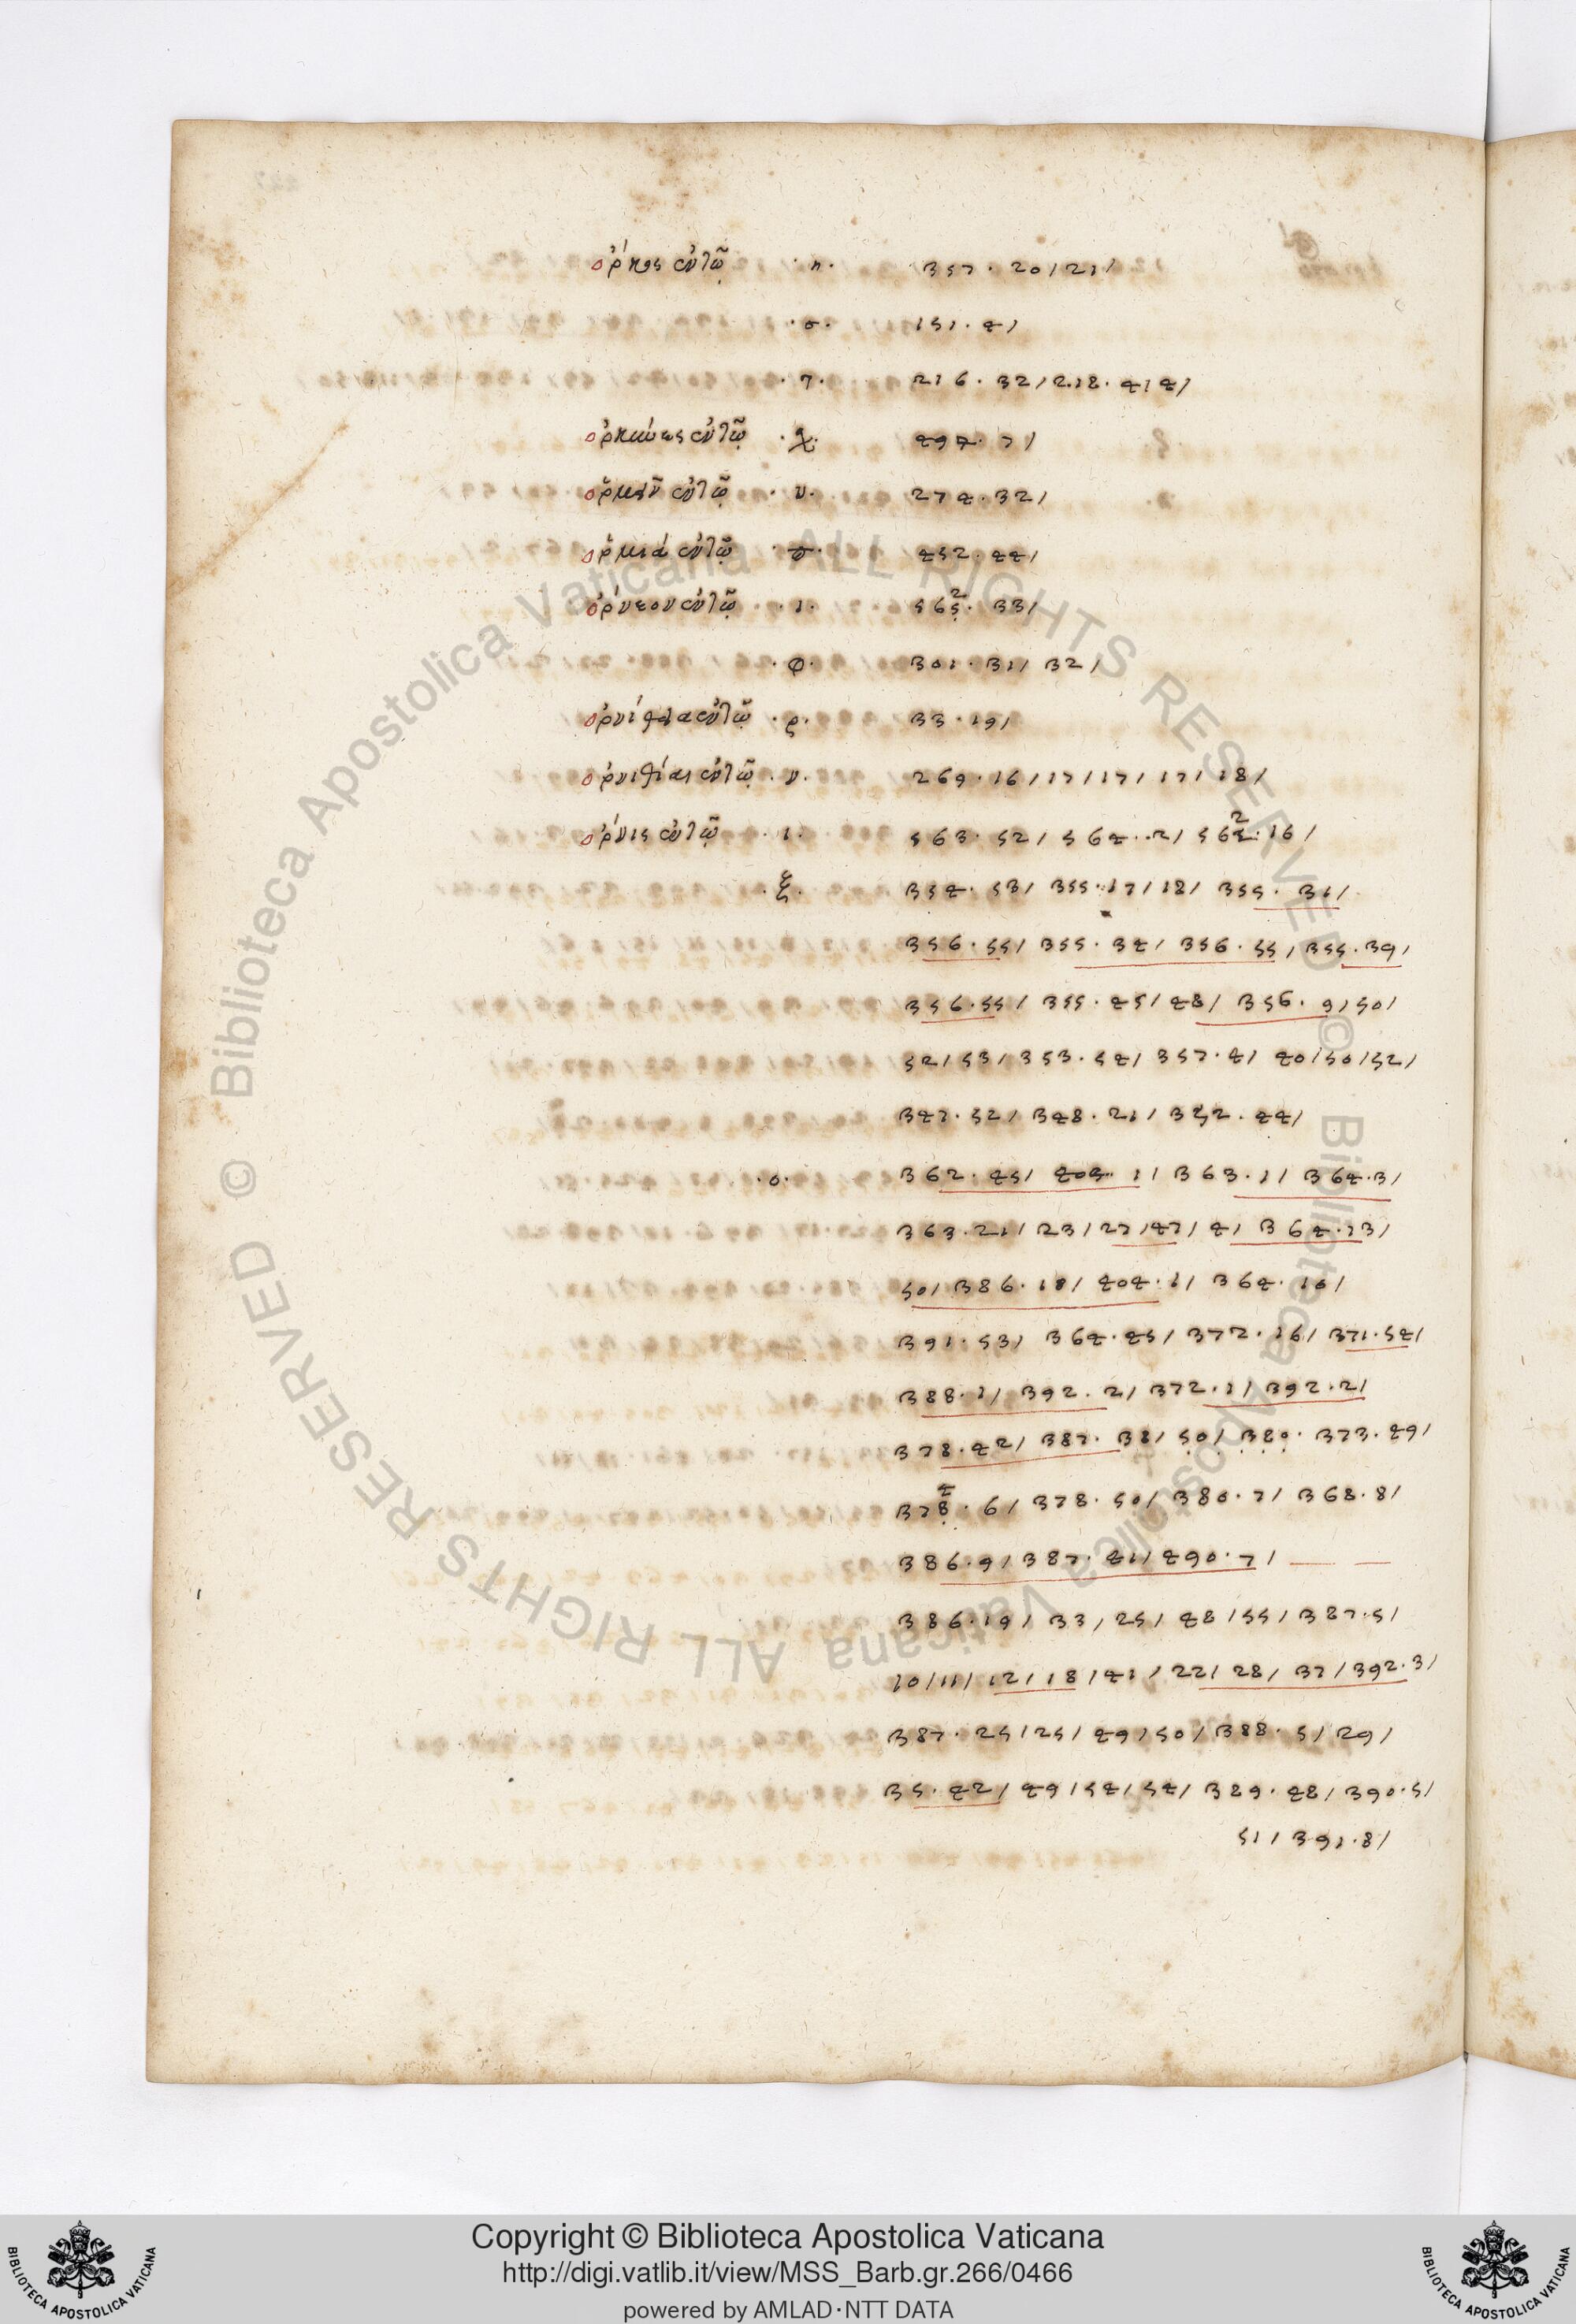 ὅρκος ἐν τῷ ·η· 357 · 20 / 21 /
·σ· 151 · 4 /
·τ· 216 · 32 / 218 · 4 / 4 /
ἐν τῷ ·χ· 494 · 7 /
ἐν τῷ ·υ· 274 · 32 /
ὁρμιά ἐν τῷ 452 · 44 /
ὄρνεον ἐν τῷ ·ι· 565 · 33 /
·φ· 301 · 31 / 32 /
ἐν τῷ ·ρ· 33 · 19 /
ὀρνιθίαι ἐν τῷ ·υ· 269 · 16 / 17 / 17 / 17 / 18 /
ὄρνις ἐν τῷ ·ι· 563 · 52 / 564 · 2 / 564 · 16 /
·ξ· 354 · 53 / 355 · 17 / 18 / 355 · 31 /
356 · 55 / 355 · 34 / 356 · 55 / 355 · 39 /
356 · 55 / 355 · 45 / 48 / 356 · 9 / 50 /
52 / 53 / 353 · 54 / 357 · 4 / 40 / 50 / 52 /
347 · 52 / 348 · 21 / 352 · 44 /
·ο· 362 · 45 / 403 · 1 / 363 · 1 / 364 · 3 /
363 · 21 / 23 / 27 / 47 / 4 / 364 · 13 /
50 / 386 · 18 / 404 · 1 / 364 · 16 /
391 · 53 / 364 · 45 / 372 · 16 / 371 · 54 /
388 · 1 / 392 · 2 / 372 · 1 / 392 · 2 /
378 · 42 / 387 · 38 / 50 / 380 · 373 · 49 /
378 · 6 / 378 · 50 / 380 · 7 / 368 · 8 /
386 · 9 / 387 · 41 / 490 · 7 /
386 · 19 / 33 / 25 / 48 / 55 / 387 · 5 /
10 / 11 / 12 / 18 / 41 / 22 / 28 / 37 / 392 · 3 /
387 · 25 / 25 / 49 / 50 / 388 · 5 / 29 /
35 · 42 / 49 / 54 / 54 / 389 · 48 / 390 · 5 /
51 / 391 · 8 /
Copyright © Biblioteca Apostolica Vaticana
http://digi.vatlib.it/view/MSS_Barb.gr.266/0466
powered by AMLAD·NTT DATA